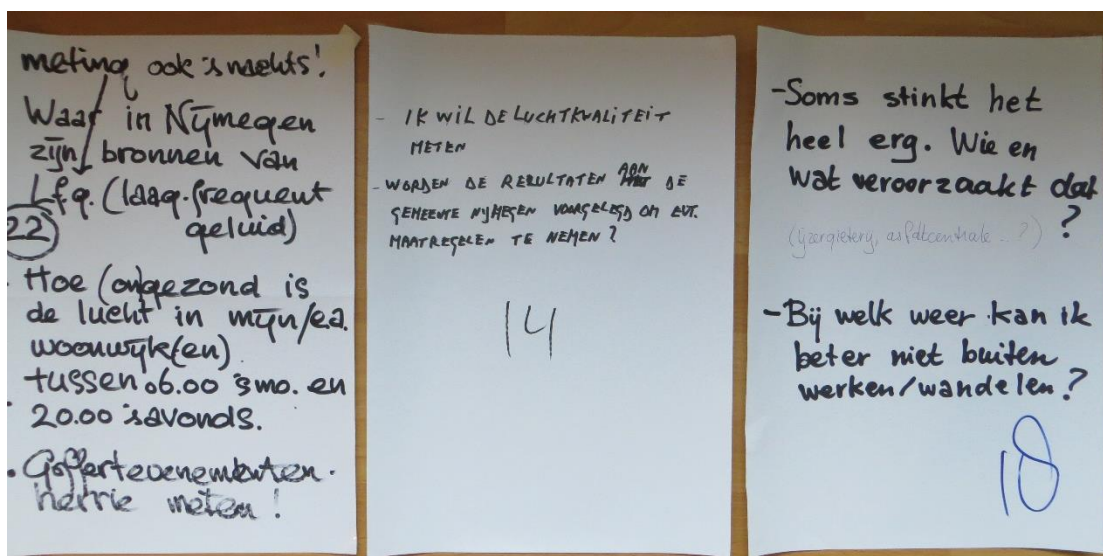 meting ook 's nachts!
Waar in Nijmegen
zijn bronnen van
L.f.g. (laag-frequent
geluid)
22
Hoe (on)gezond is
de lucht in mijn/e.a.
woonwijk(en)
tussen 06.00 's mo. en
20.00 's avonds.
• Goffertevenementen-
herrie meten!
- IK WIL DE LUCHTKWALITEIT
METEN
- WORDEN DE RESULTATEN AAN DE
GEMEENTE NIJMEGEN VOORGELEGD OM EVT.
MAATREGELEN TE NEMEN?
14
- Soms stinkt het
heel erg. Wie en
wat veroorzaakt dat
?
(ijzergieterij, asfaltcentrale..?)
- Bij welk weer kan ik
beter niet buiten
werken/wandelen?
18